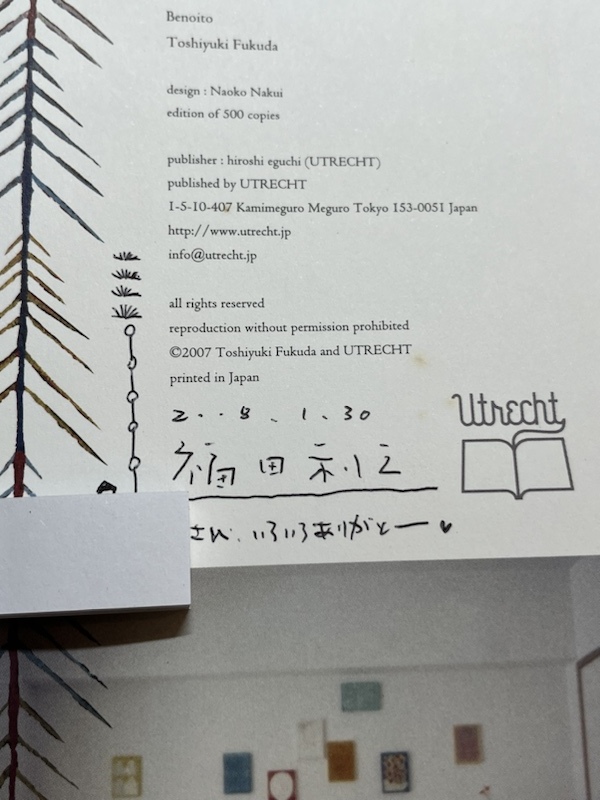 Benoito
Toshiyuki Fukuda
design : Naoko Nakui
edition of 500 copies
publisher : hiroshi eguchi (UTRECHT)
published by UTRECHT
1-5-10-407 Kamimeguro Meguro Tokyo 153-0051 Japan
http://www.utrecht.jp
info@utrecht.jp
all rights reserved
reproduction without permission prohibited
©2007 Toshiyuki Fukuda and UTRECHT
printed in Japan
2..8.1.30
福田利之
Utrecht
さん、いろいろありがとー♥